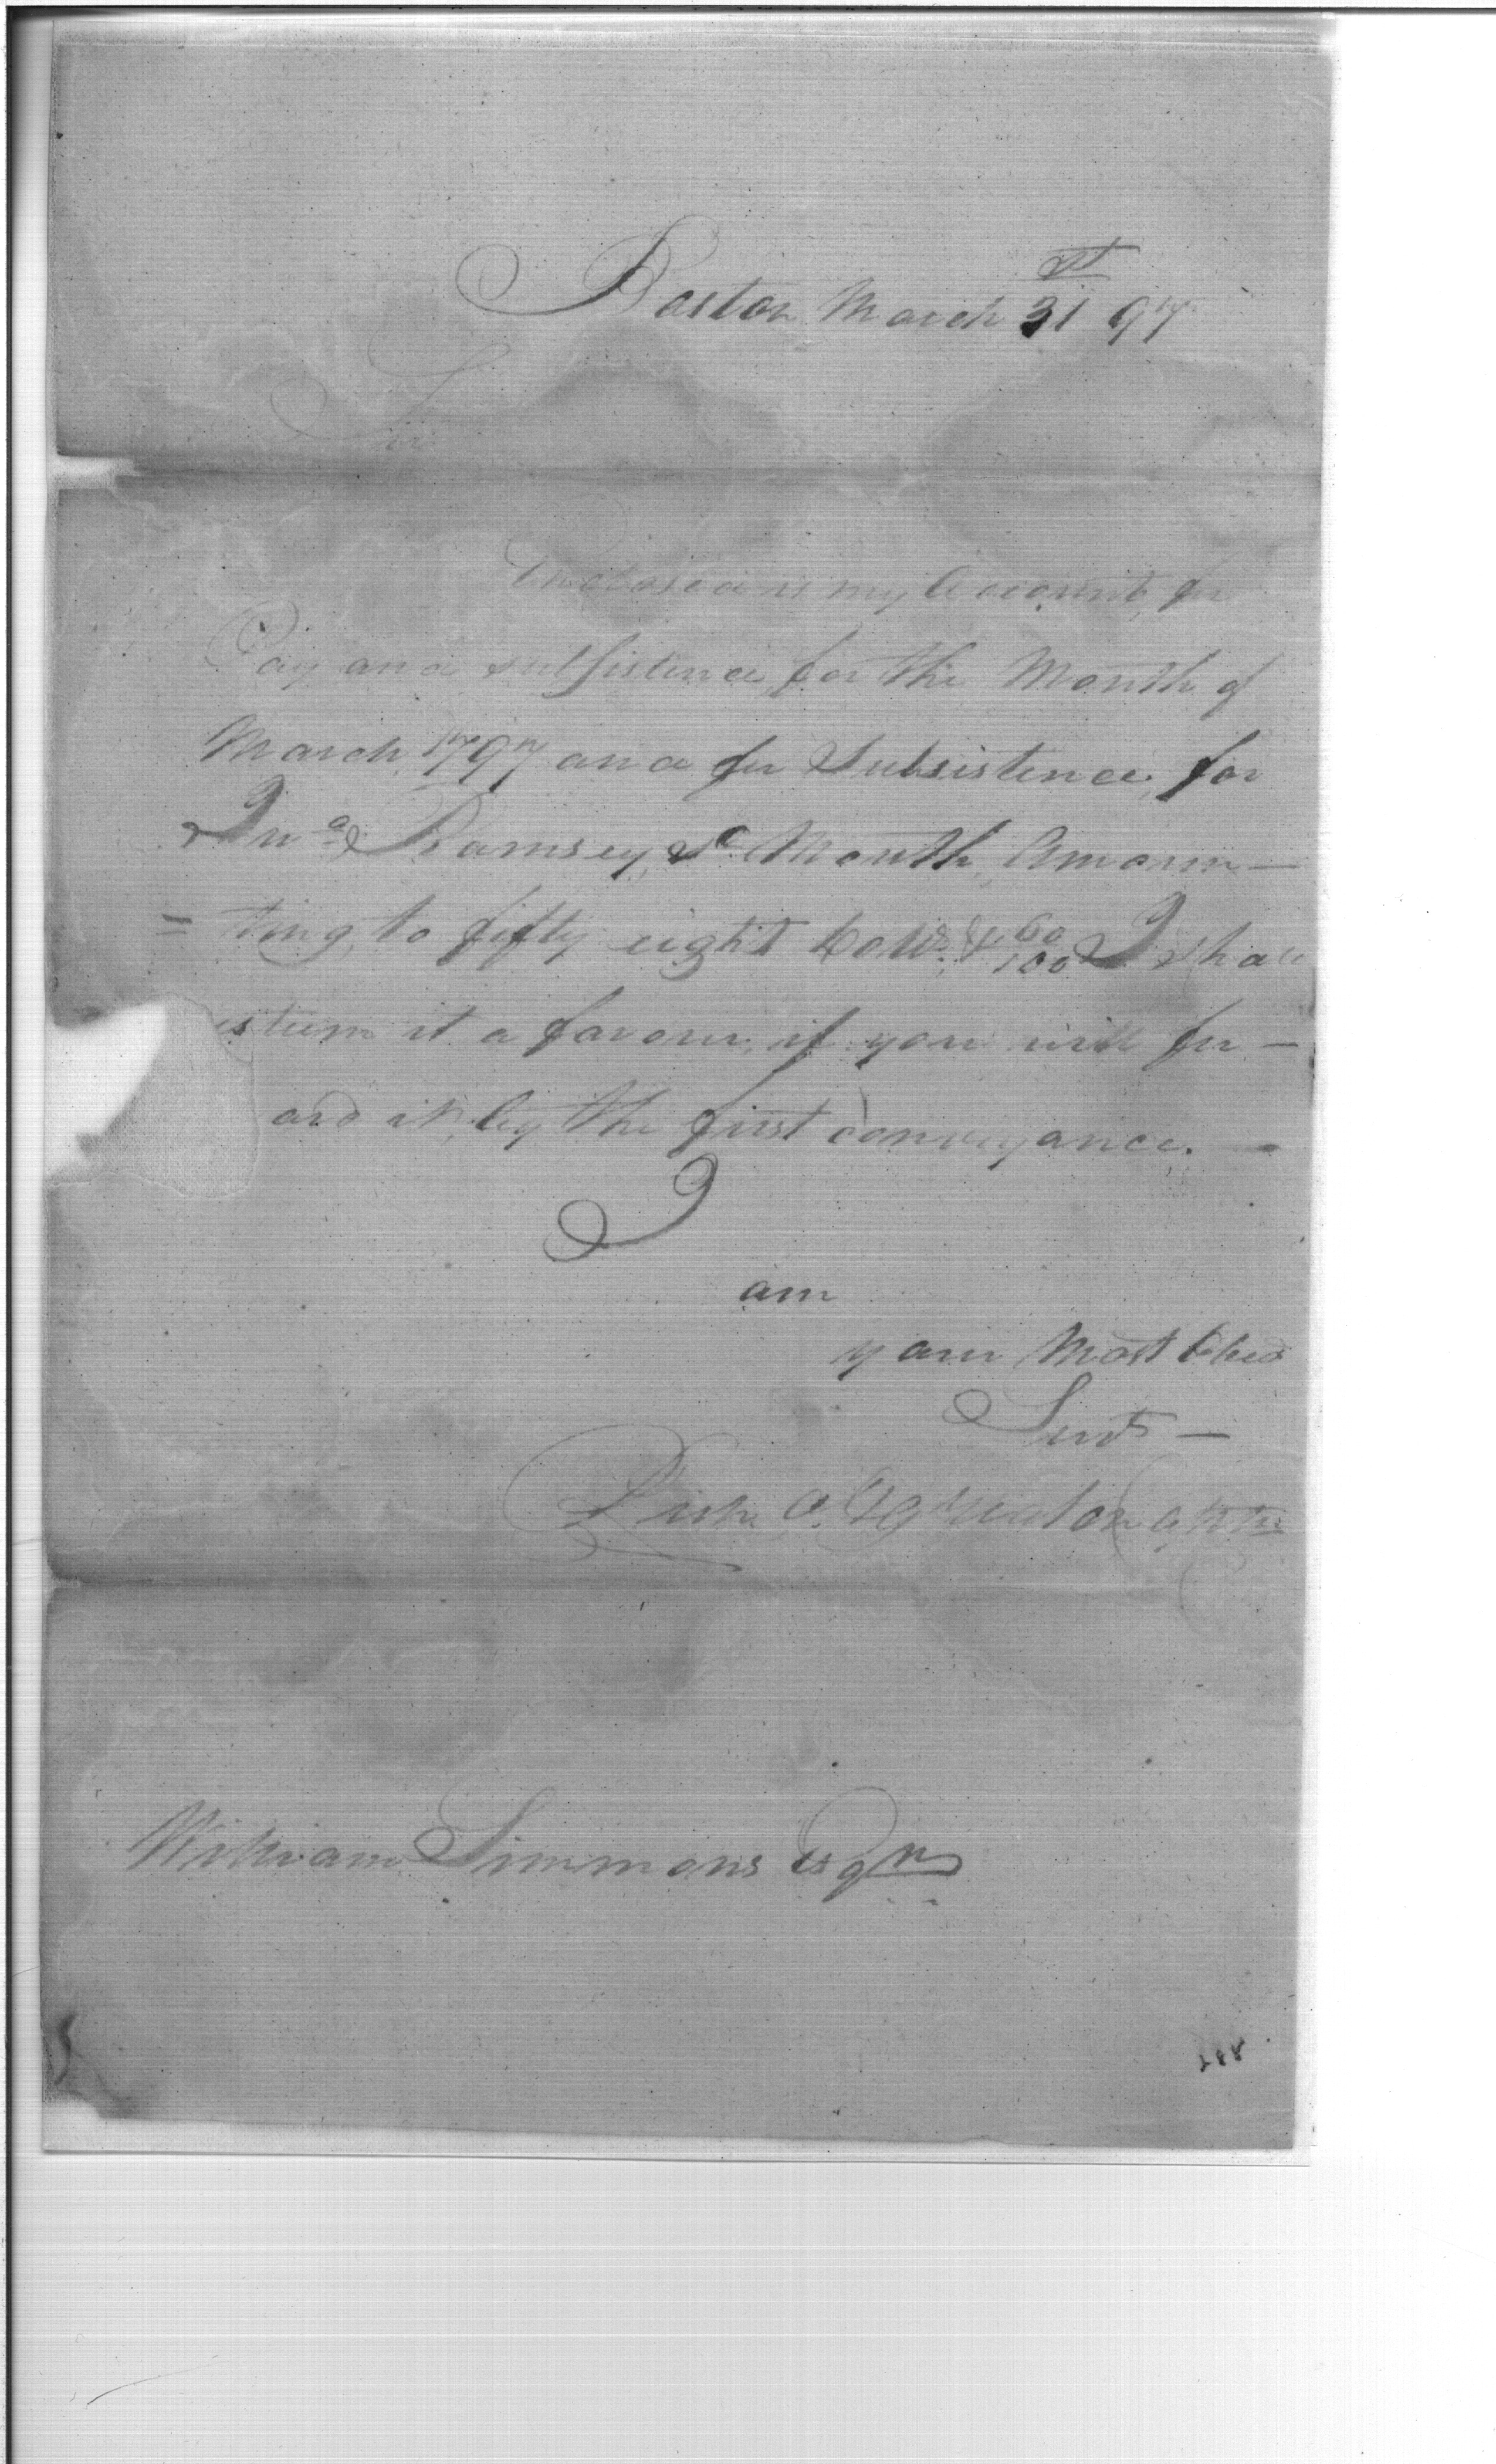 Boston March 31st 97
Sir
Enclosed is my Account, for
Pay and subsistence, for the Month of
March, 1797 and for Subsistence, for
Ramsey, Sd Month, Amoun—
= ting, to fifty eight Dolls. & 60/100 I shall
esteem it a favour, if you will for—
ard it, by the first conveyance. —
I
am
your Most Obed
Servt —
William Simmons Esqr